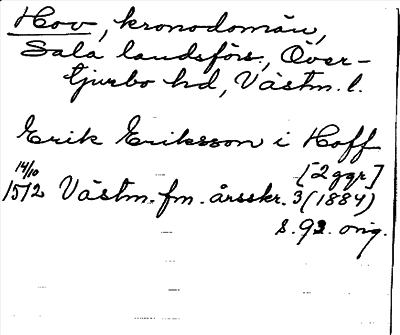 Hov, kronodomän,
Sala landsförs., Över-
tjurbo hd, Västm. l.
Erik Eriksson i Hoff
[2 ggr]
14/10
1512 Västm. fm. årsskr. 3 (1884)
s. 92. orig.